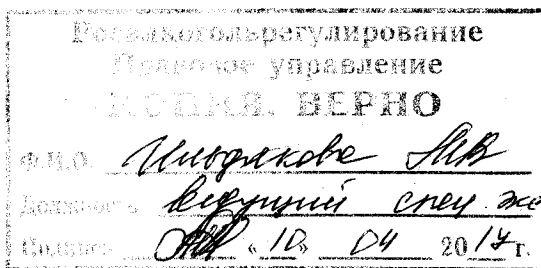 Росалкогольрегулирование
Правовое управление
КОПИЯ. ВЕРНО
Ф.И.О.
Должность ведущий спец. экс
Подпись «10» 04 2017 г.